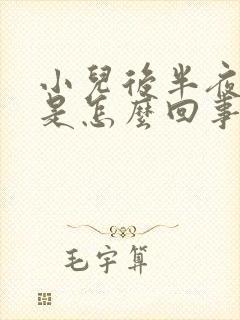 小兒後半夜
是怎麼回事
毛宇算